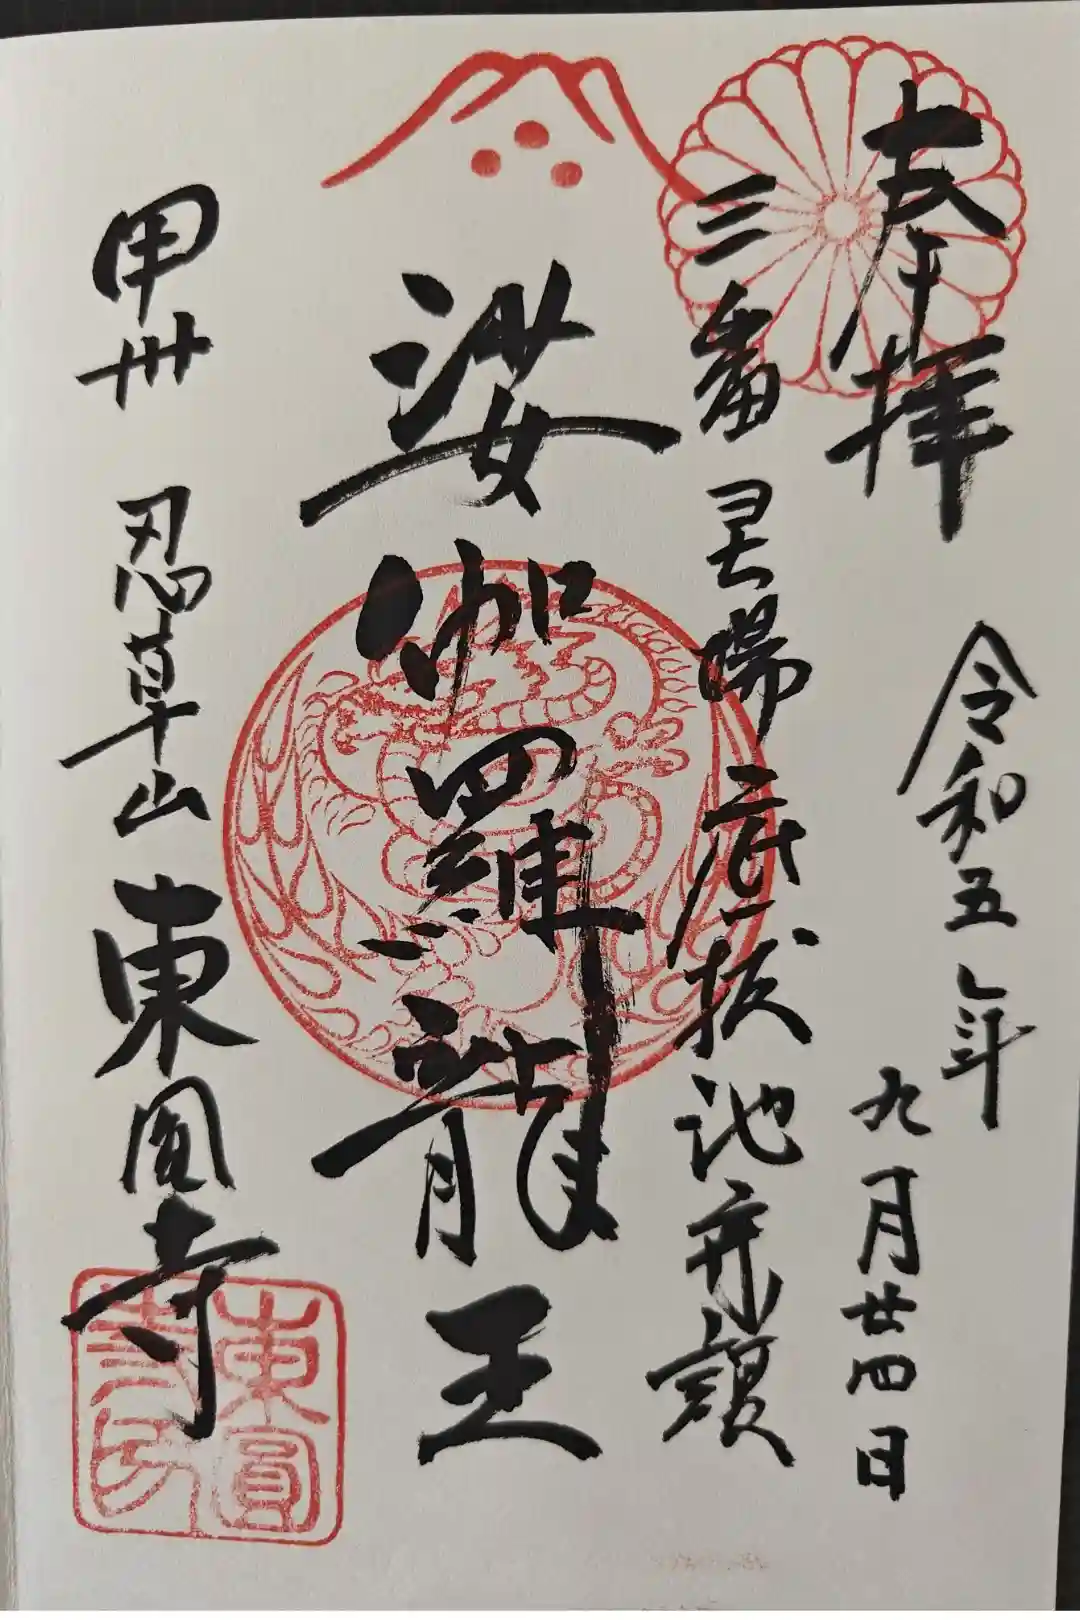 奉拝
令和五年
九月廿四日
三番 霊場 底抜池 弁 
娑伽羅龍王
甲州 忍草山 東圓寺
東圓
寺印